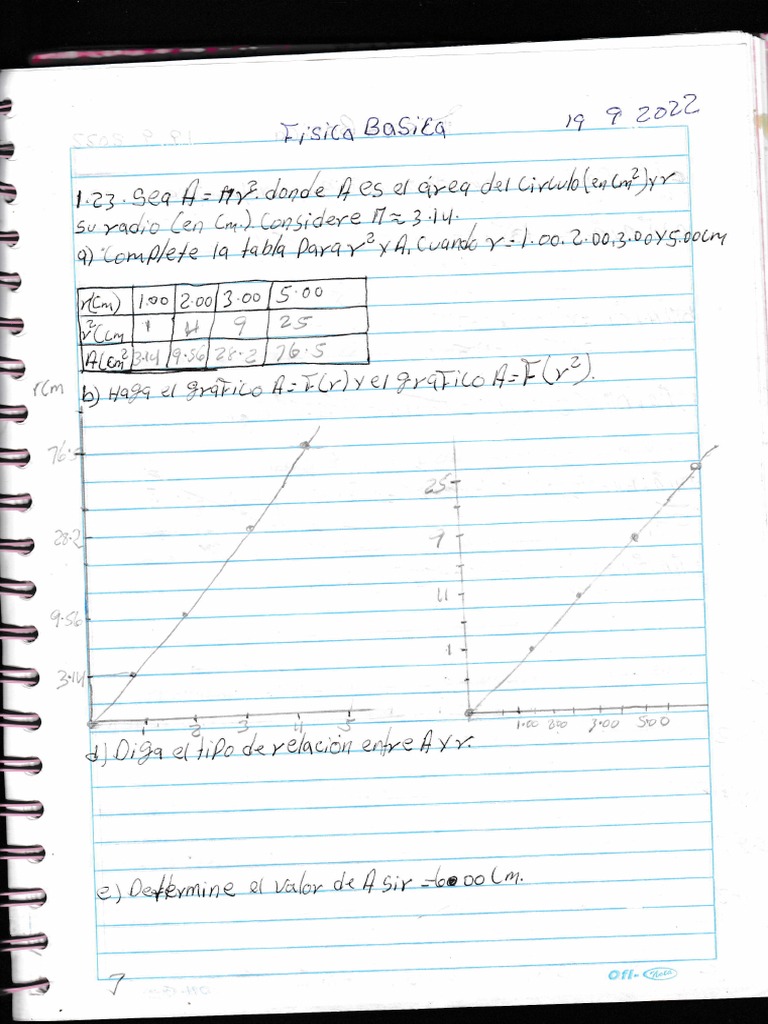 Fisica Basica 19 9 2022
1.23. Sea A = πr². donde A es el área del Circulo (en Cm²) y r
su radio (en Cm.) Considere π ≈ 3.14.
a) Complete la tabla para r² y A, Cuando r = 1.00. 2.00, 3.00 y 5.00 Cm
r(Cm) 1.00 2.00 3.00 5.00
r²(Cm 1 4 9 25
A(cm² 3.14 9.56 28.2 76.5
r Cm b) Haga el gráfico A = F(r) y el gráfico A = F(r²).
76.5
28.2
9.56
3.14
1 2 3 4 5
25
9
4
1
1.00 2.00 3.00 5.00
d) Diga el tipo de relación entre A y r.
e) Determine el valor de A si r = 6.00 Cm.
7